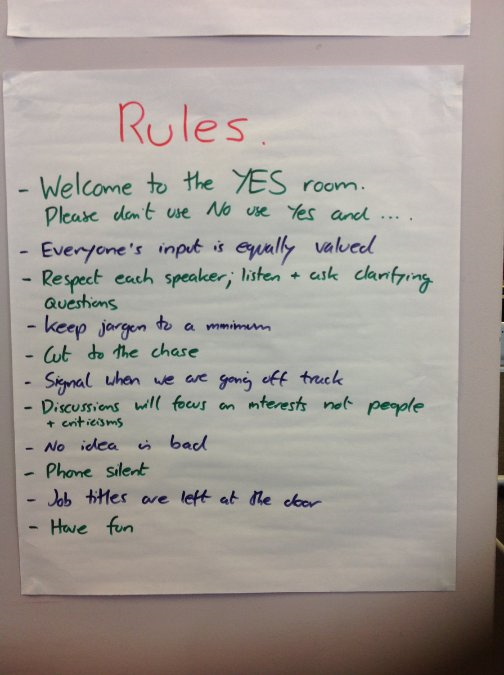 Rules.
- Welcome to the YES room.
Please don't use No use Yes and ....
- Everyone's input is equally valued
- Respect each speaker; listen + ask clarifying
questions
- Keep jargon to a minimum
- Cut to the chase
- Signal when we are going off track
- Discussions will focus on interests not people
+ criticisms
- No idea is bad
- Phone silent
- Job titles are left at the door
- Have fun